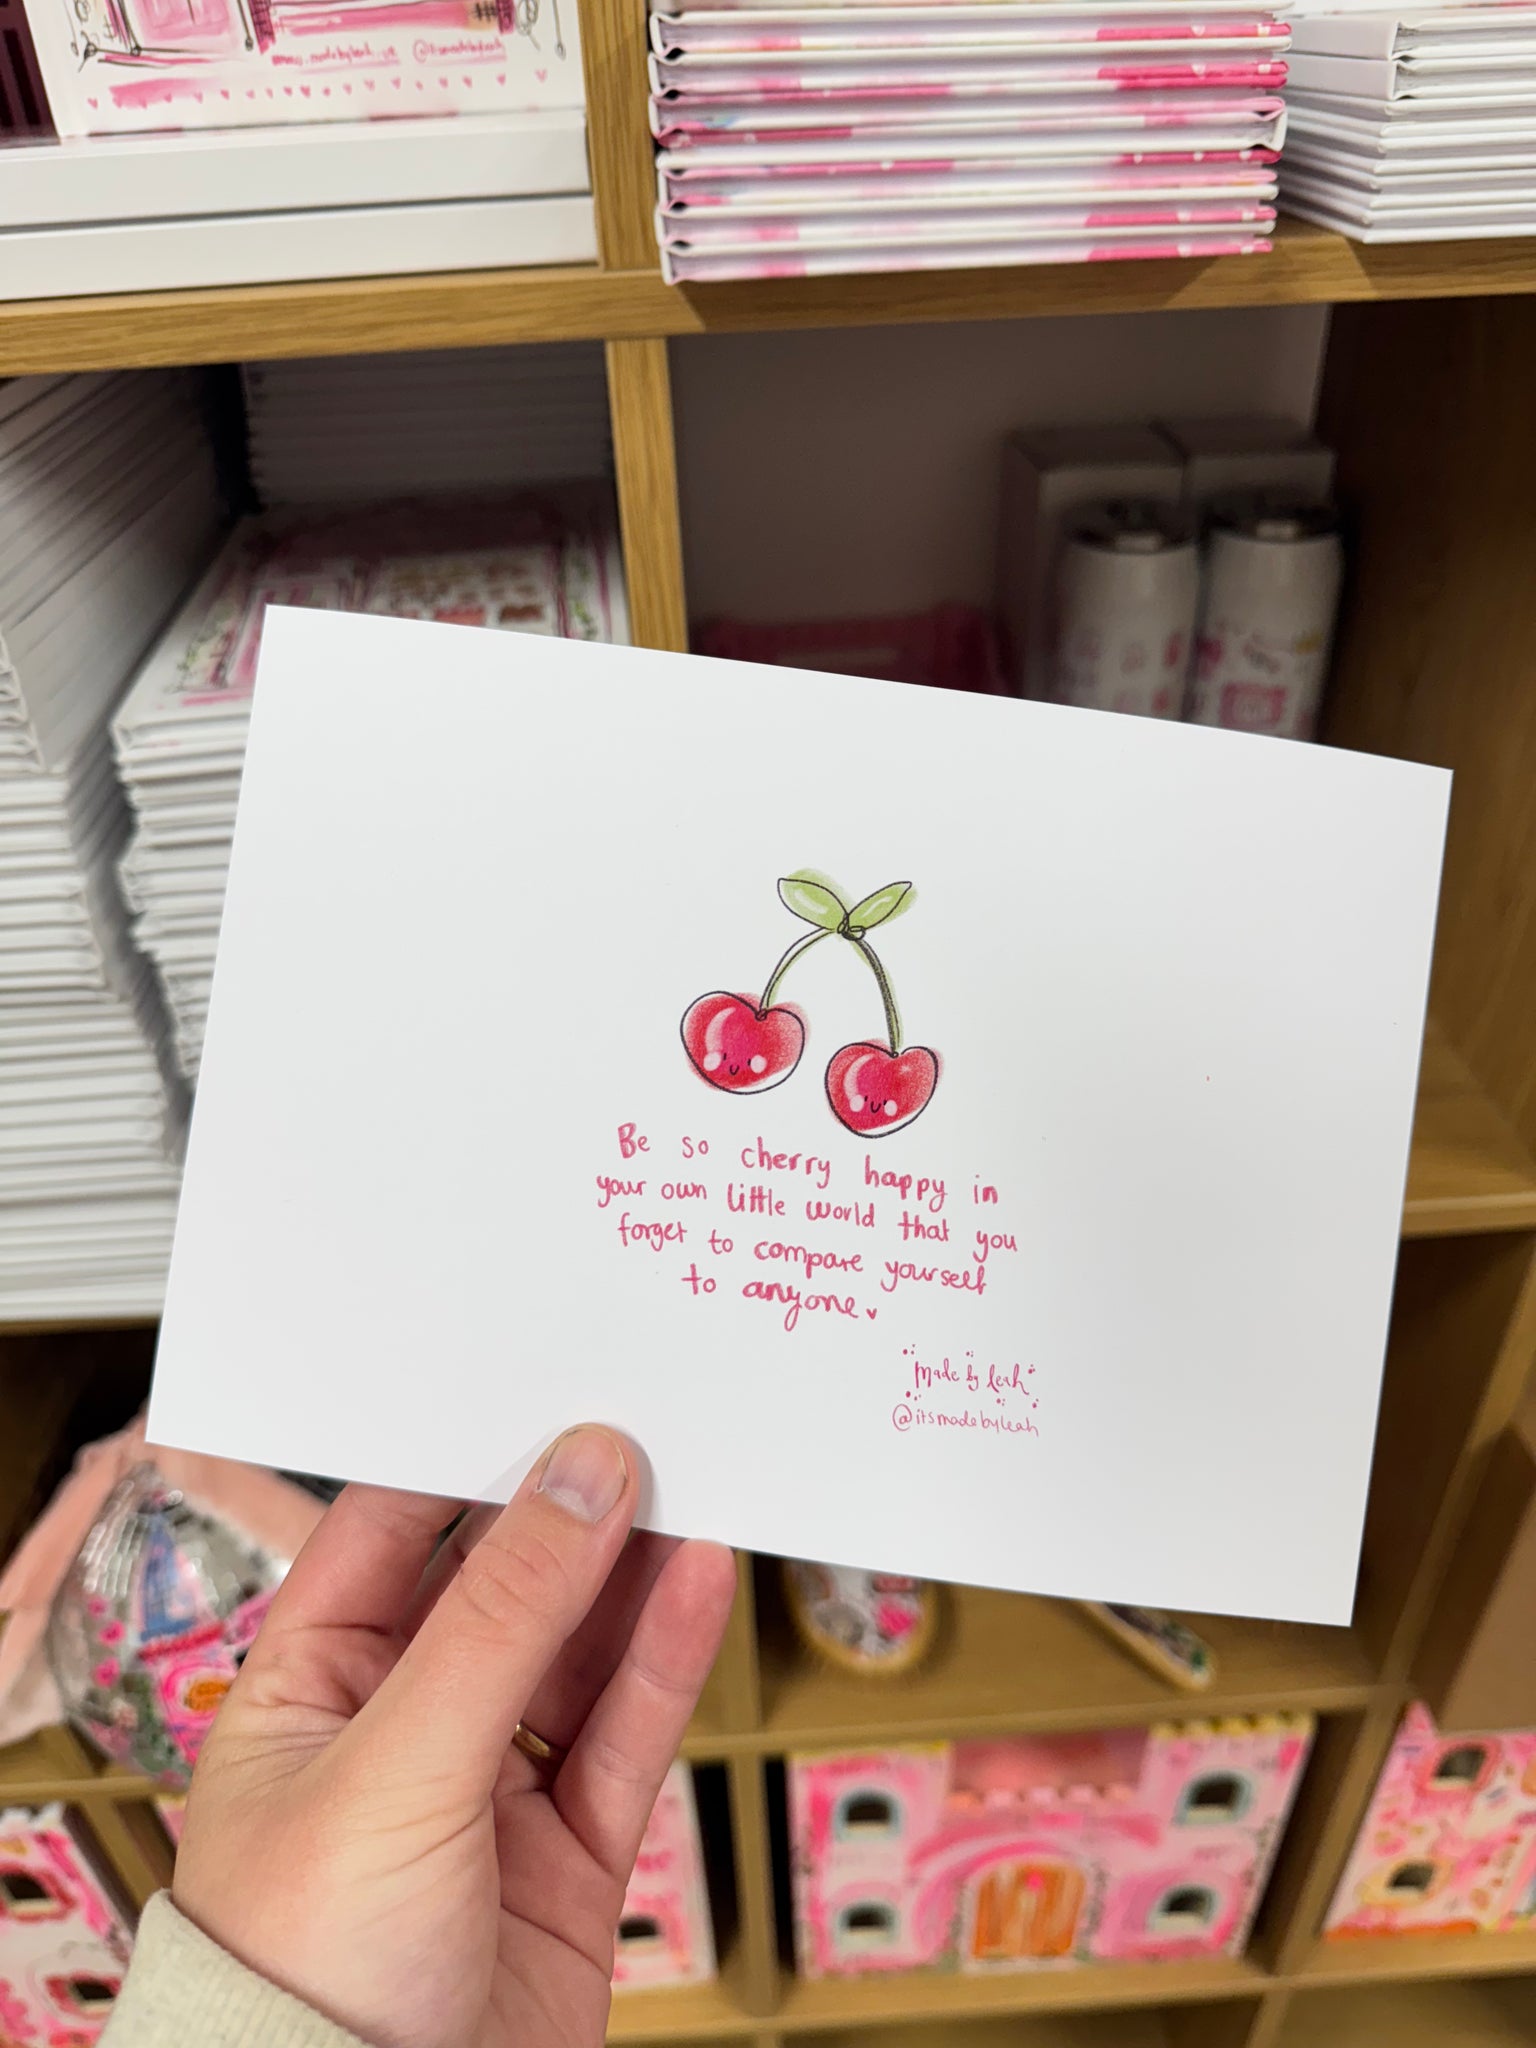 www.madebyleah.uk @itsmadebyleah
Be so cherry happy in
your own little world that you
forget to compare yourself
to anyone
made by leah
@itsmadebyleah